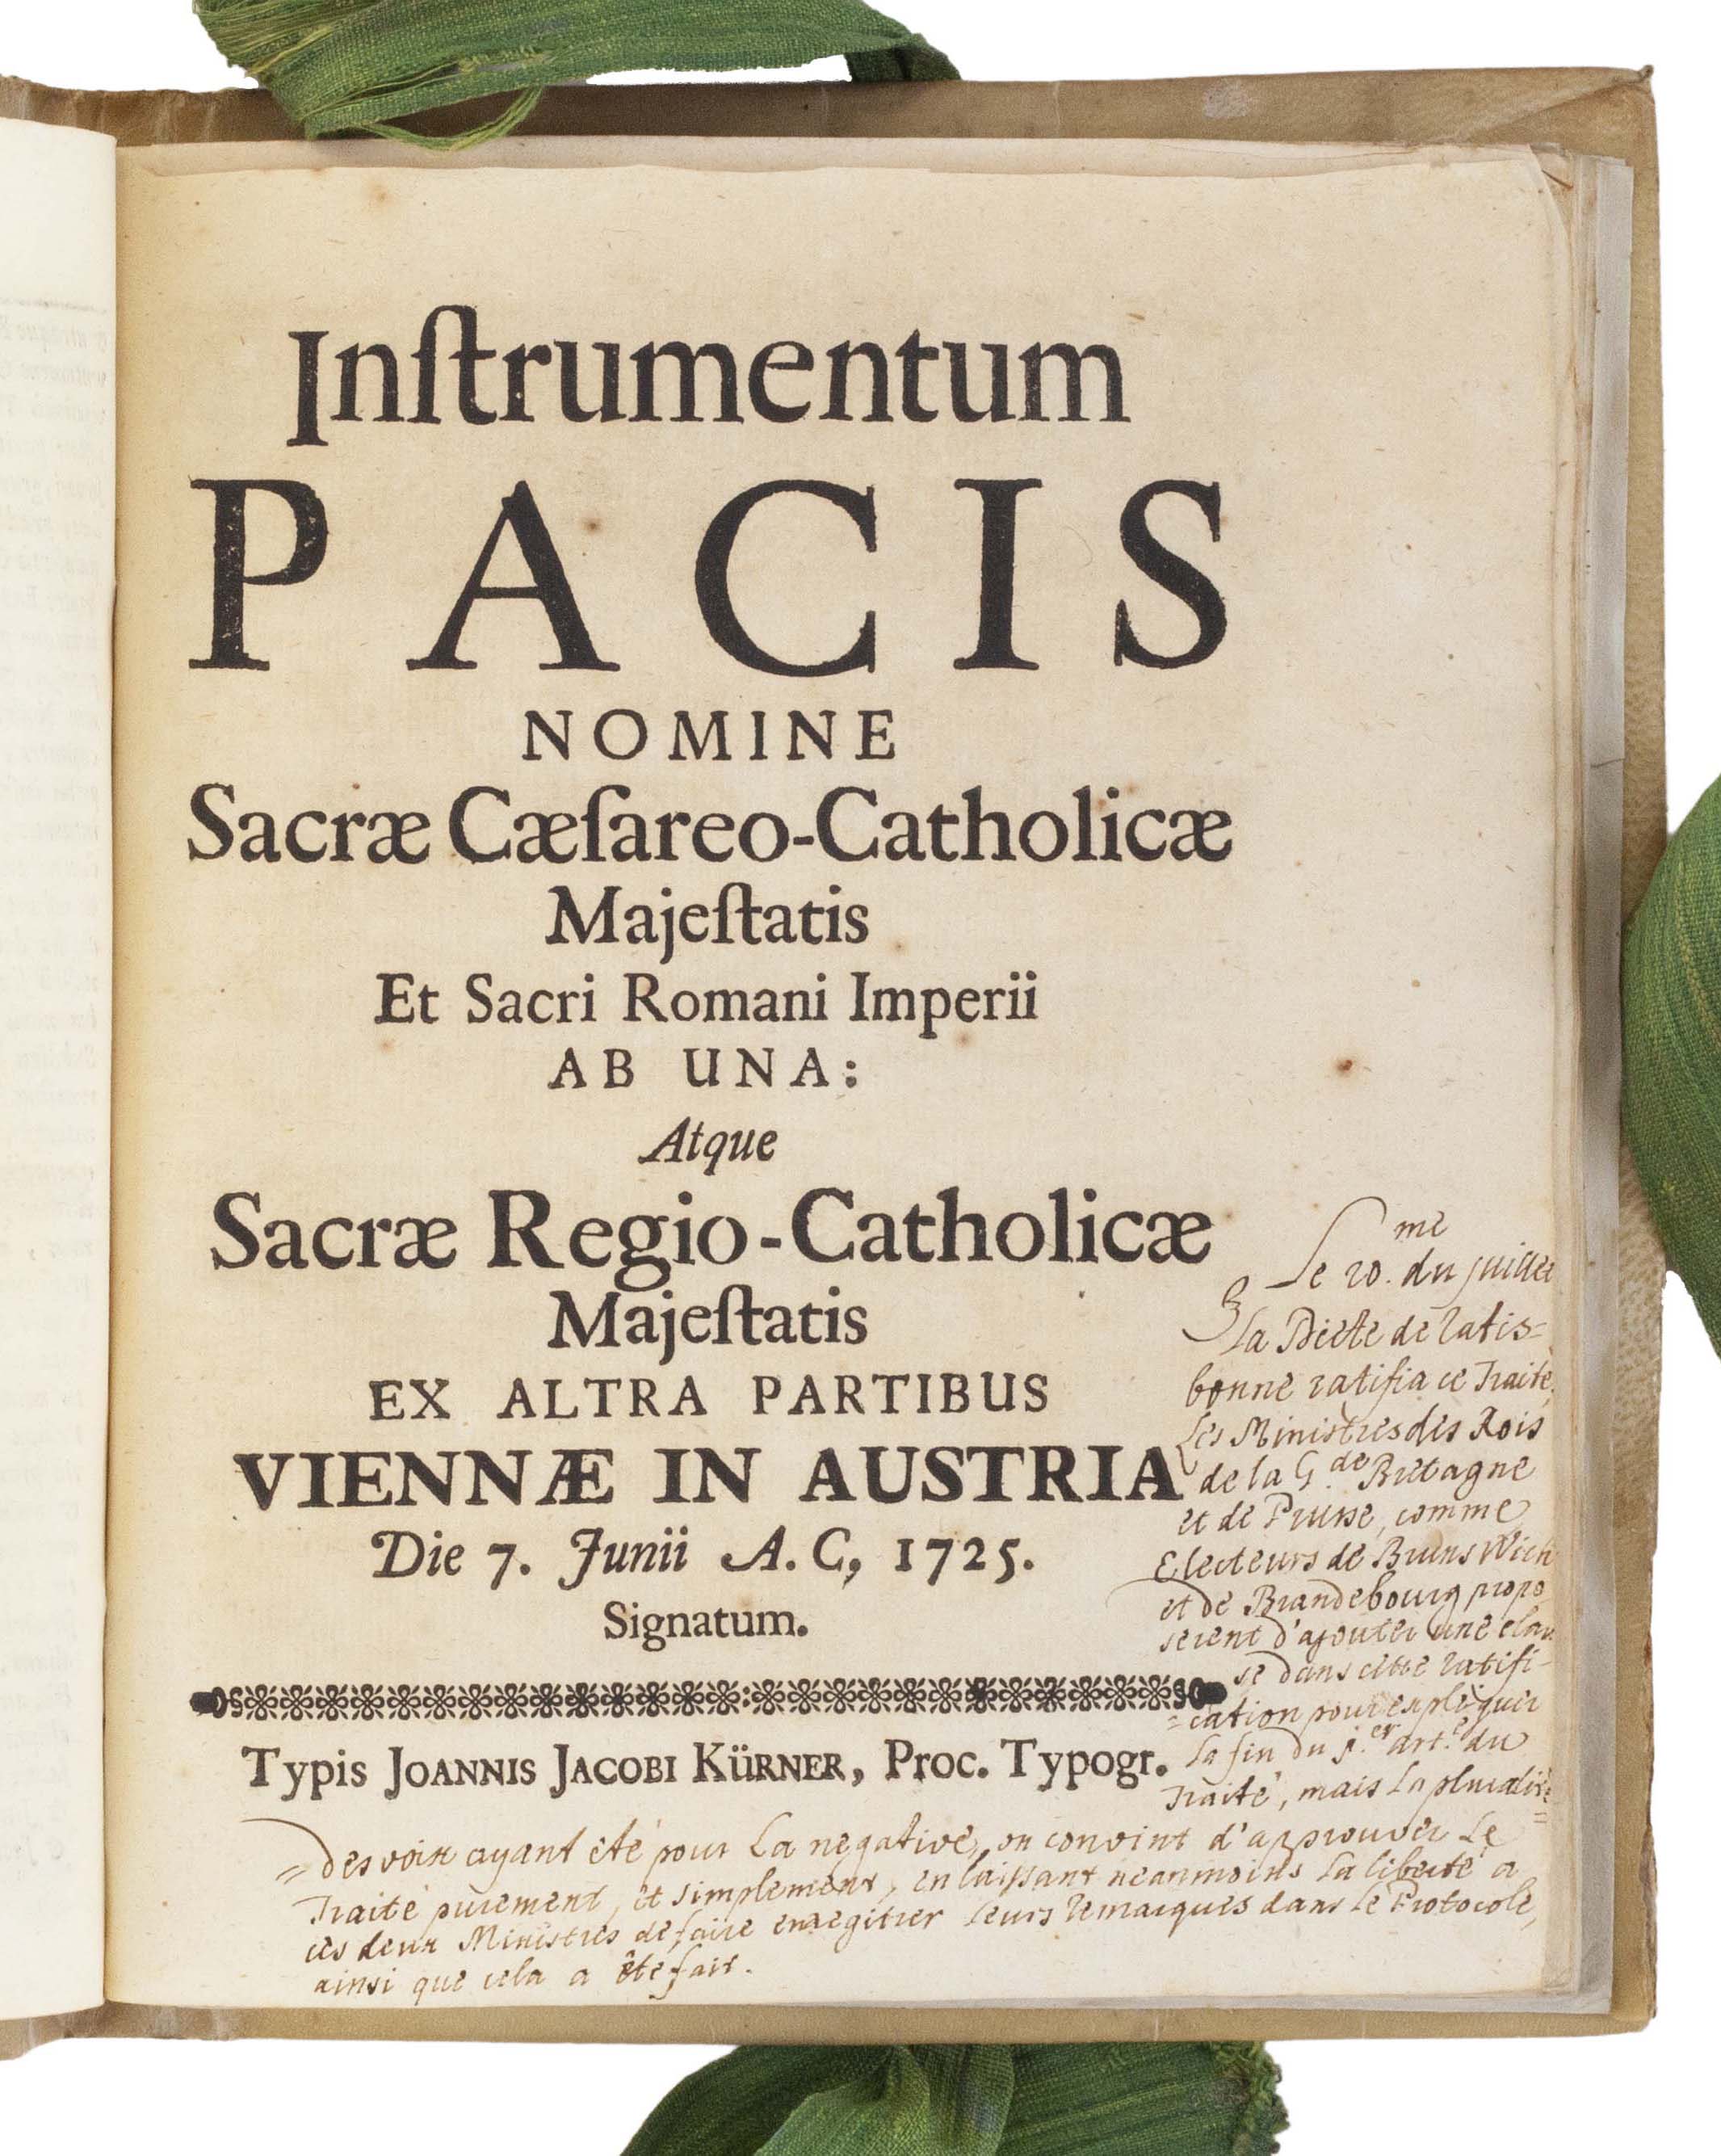 Inſtrumentum
PACIS
NOMINE
Sacræ Cæſareo-Catholicæ
Majeſtatis
Et Sacri Romani Imperii
AB UNA:
Atque
Sacræ Regio-Catholicæ
Majeſtatis
EX ALTRA PARTIBUS
VIENNÆ IN AUSTRIA
Die 7. Junii A. C, 1725.
Signatum.
Typis JOANNIS JACOBI KÜRNER, Proc. Typogr.
Le 20.me du juillet
la Diete de Ratis-
bonne ratifia ce Traité,
Les Ministres des Rois
de la G.de Bretagne
et de Prusse, comme
Electeurs de Bruns Wich
et de Brandebourg propo
serent d'ajouter une clau
se dans cette ratifi-
=cation pour expliquer
la fin du j.er art.e du
Traité, mais la pluralité
=des voix ayant eté pour la negative, on convint d'approuver le
Traité purement, et simplement, en laissant neanmoins la liberté a
ces deux Ministres de faire enregitrer leurs remarques dans le Protocole,
ainsi que cela a ête fait.